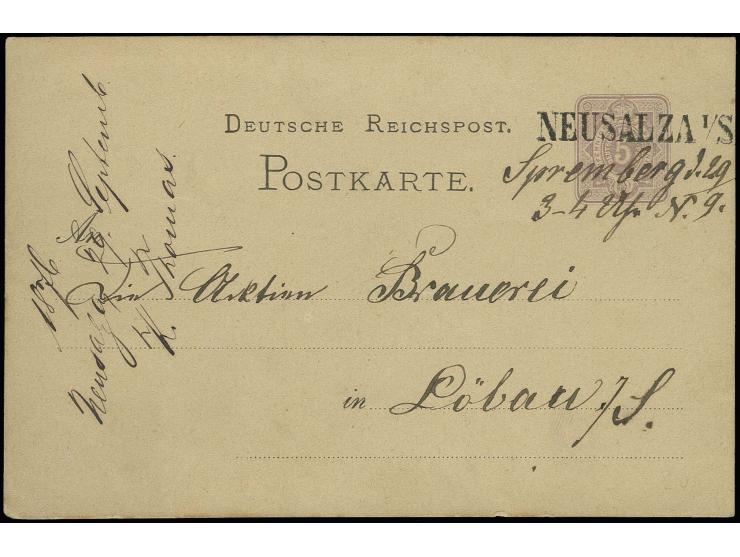 DEUTSCHE REICHSPOST.
POSTKARTE.
NEUSALZA I/S
Spremberg d. 29
3-4 Uhr N. 9.
An
Die Aktien Brauerei
in Löbau /S.
Neusalza 29. Septemb.
1876
Thomas.